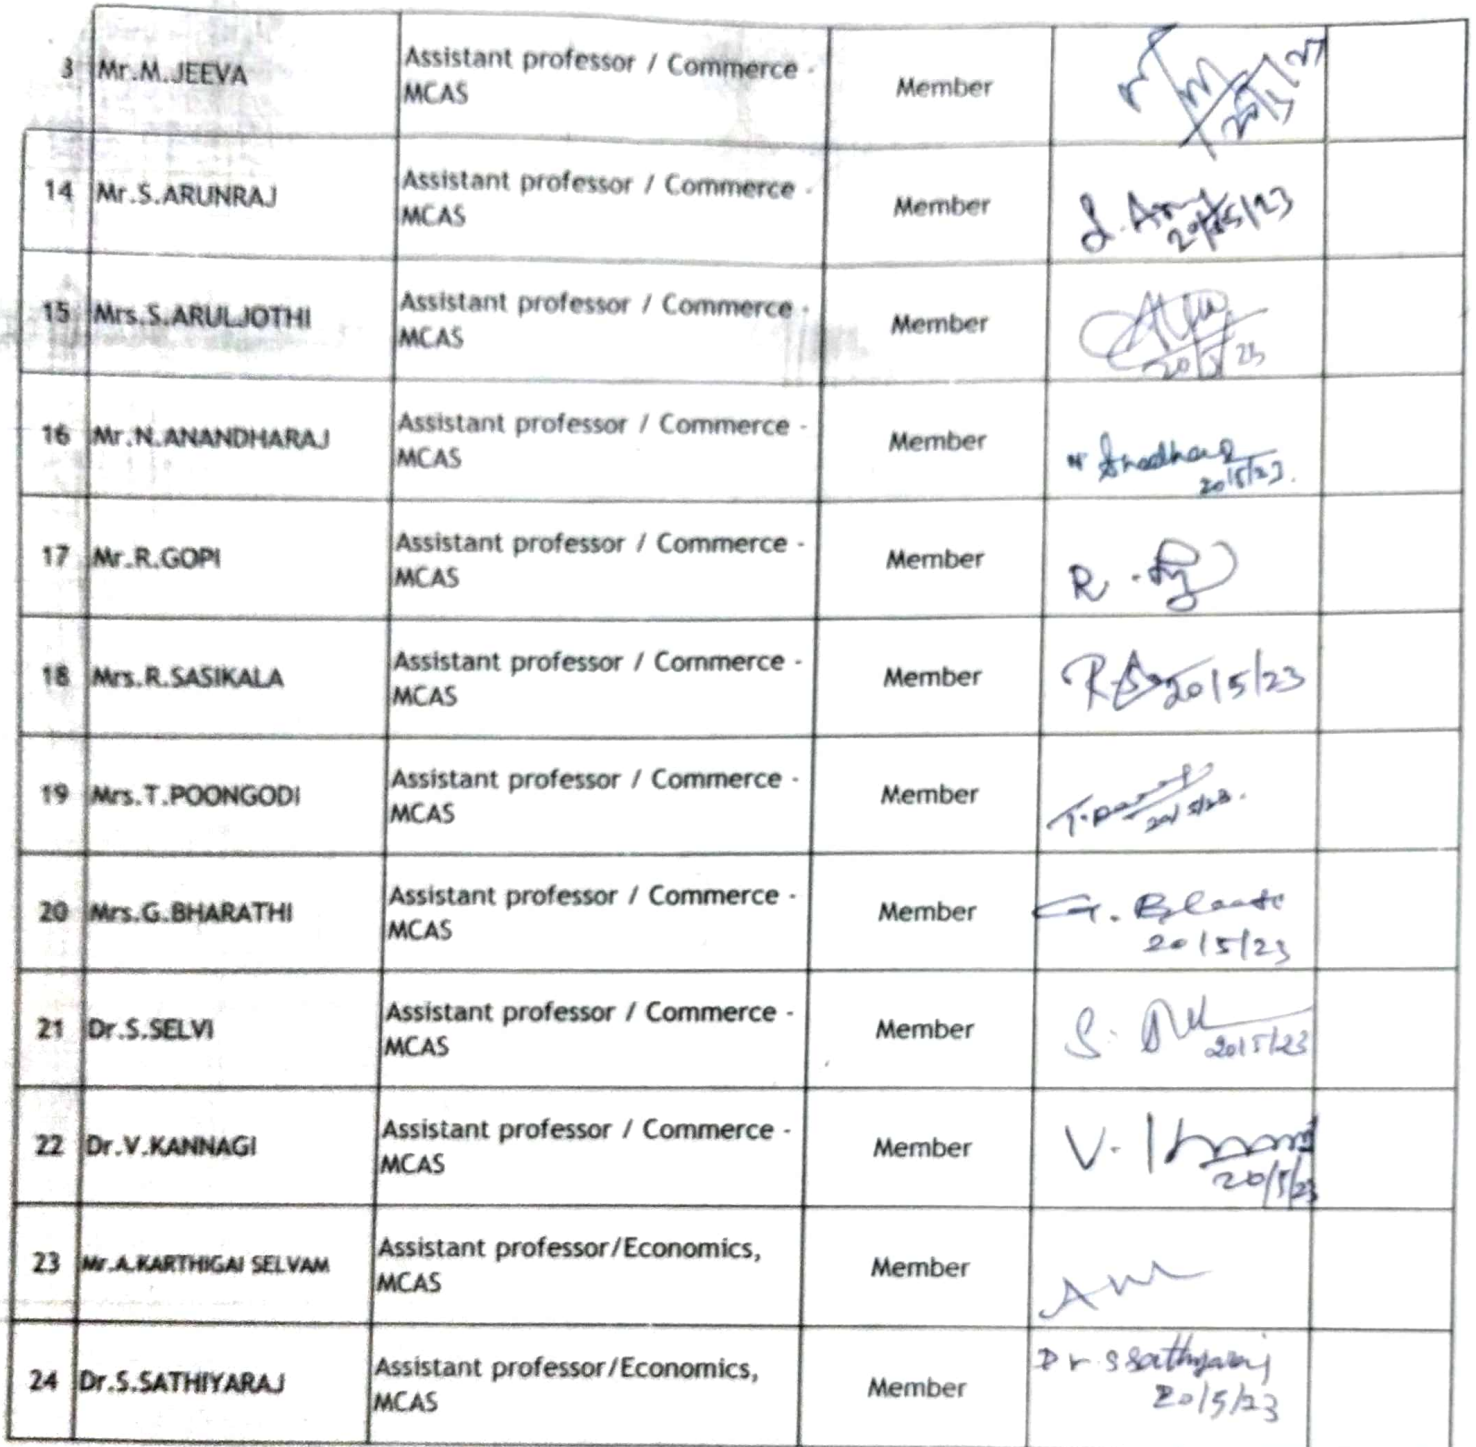 3 Mr.M.JEEVA Assistant professor / Commerce - Member
MCAS
14 Mr.S.ARUNRAJ Assistant professor / Commerce - Member
MCAS
20/05/23
15 Mrs.S.ARULJOTHI Assistant professor / Commerce - Member
MCAS
20/5/23
16 Mr.N.ANANDHARAJ Assistant professor / Commerce - Member
MCAS
20/5/23.
17 Mr.R.GOPI Assistant professor / Commerce - Member
MCAS
R.
18 Mrs.R.SASIKALA Assistant professor / Commerce - Member 20/5/23
MCAS
19 Mrs.T.POONGODI Assistant professor / Commerce - Member
MCAS
20/5/23.
20 Mrs.G.BHARATHI Assistant professor / Commerce - Member G.
MCAS
20/5/23
21 Dr.S.SELVI Assistant professor / Commerce - Member S.
MCAS
20/5/23
22 Dr.V.KANNAGI Assistant professor / Commerce - Member V.
MCAS
20/5/23
23 Mr.A.KARTHIGAI SELVAM Assistant professor/Economics, Member
MCAS
24 Dr.S.SATHIYARAJ Assistant professor/Economics, Member Dr.S Sathiyaraj
MCAS
20/5/23